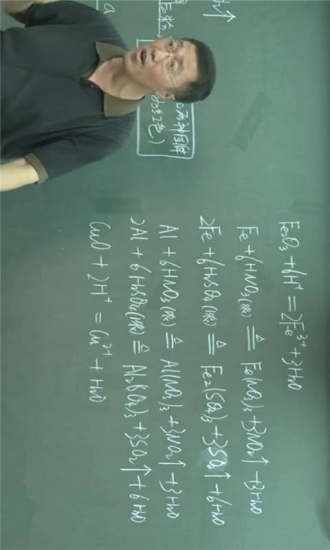 Fe₂O₃ + 6H⁺ = 2Fe³⁺ + 3H₂O
Fe + 6HNO₃(浓) ≜ Fe(NO₃)₃ + 3NO₂↑ + 3H₂O
2Fe + 6H₂SO₄(浓) ≜ Fe₂(SO₄)₃ + 3SO₂↑ + 6H₂O
Al + 6HNO₃(浓) ≜ Al(NO₃)₃ + 3NO₂↑ + 3H₂O
2Al + 6H₂SO₄(浓) ≜ Al₂(SO₄)₃ + 3SO₂↑ + 6H₂O
CuO + 2H⁺ = Cu²⁺ + H₂O